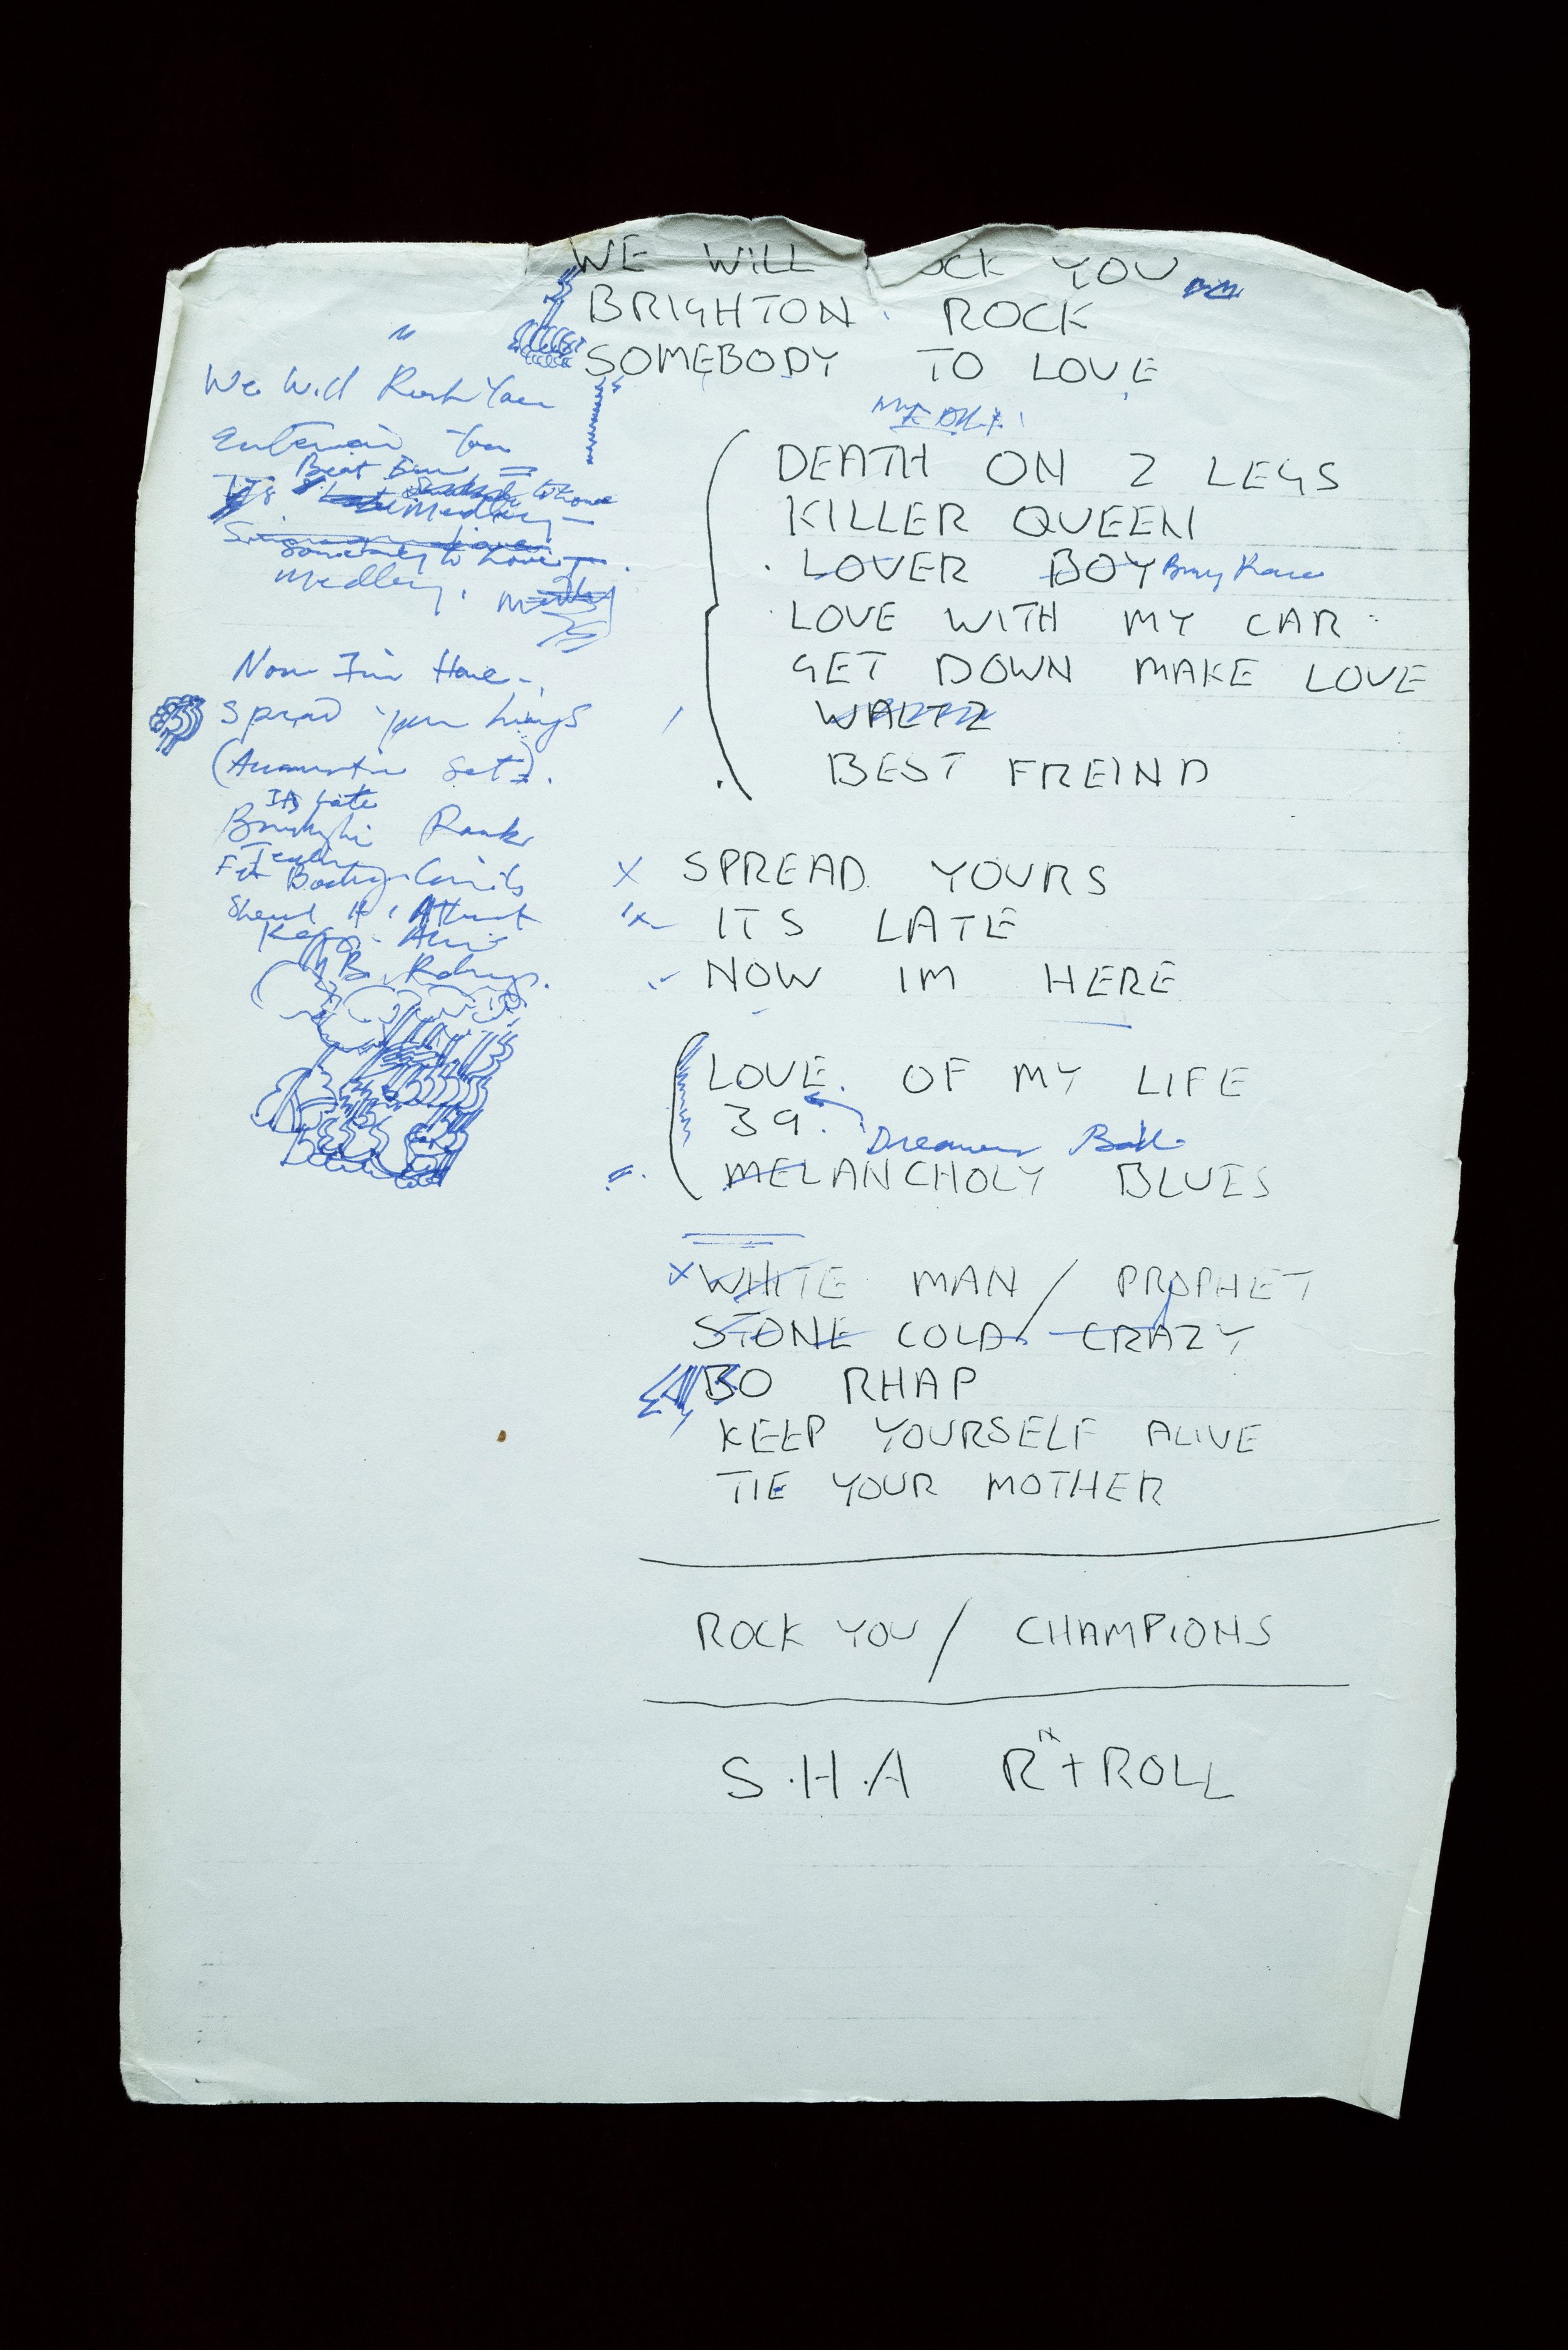 WE WILL OCK YOU
BRIGHTON ROCK
SOMEBODY TO LOVE
DEATH ON 2 LEGS
KILLER QUEEN
LOVER BOY
LOVE WITH MY CAR
GET DOWN MAKE LOVE
WALTZ
BEST FREIND
SPREAD YOURS
ITS LATE
NOW IM HERE
LOVE OF MY LIFE
39
Dreamers Ball
MELANCHOLY BLUES
WHITE MAN / PROPHET
STONE COLD CRAZY
BO RHAP
KEEP YOURSELF ALIVE
TIE YOUR MOTHER
ROCK YOU / CHAMPIONS
S.H.A R N + ROLL
We Will Rock You
Entertain You
Beat
Medley
Somebody to Love
Medley.
Now I'm Here -
Spread your wings
(Acoustic Set).
Its Late
Brighton Rock
Fat Bottom Girls
Sheer H. Attack
Keep Alive
B. Rhap.